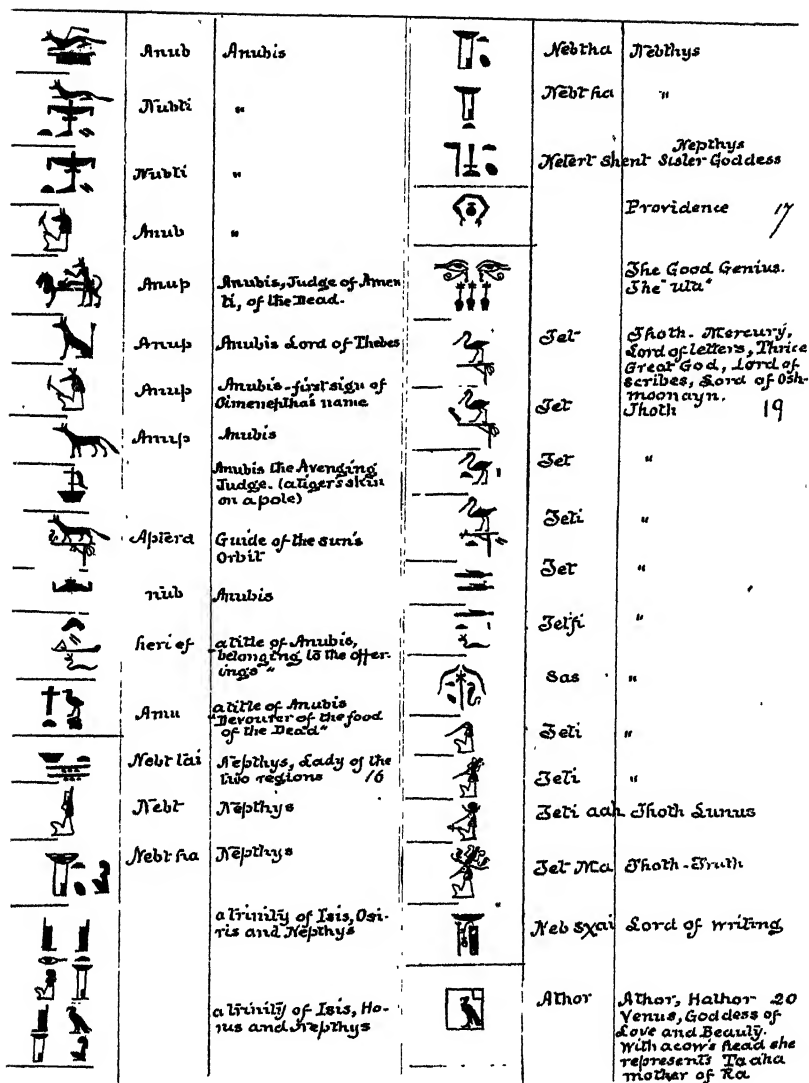 Anub Anubis
Nubti "
Nubti "
Anub "
Anup Anubis, Judge of Amen
ti, of the Dead.
Anup Anubis Lord of Thebes
Anup Anubis - first sign of
Oimenepthas name
Anup Anubis
Anubis the Avenging
Judge. (a tiger's skin
on a pole)
Apierd Guide of the sun's
Orbit
nub Anubis
heri ef a title of Anubis,
"belonging to the offer-
ings"
Amu a title of Anubis
"Devourer of the food
of the Dead"
Nebt tai Nepthys, Lady of the
two regions 16
Nebt Nepthys
Nebt ha Nepthys
a trinity of Isis, Osi-
ris and Nepthys
a trinity of Isis, Ho-
rus and Nepthys
Nebtha Nebthys
Nebt ha "
Nepthys
Netert Shent Sister Goddess
Providence 17
The Good Genius.
The "uta"
Tet Thoth - Mercury,
Lord of letters, Thrice
Great God, Lord of
scribes, Lord of Osh-
moonayn.
Tet Thoth 19
Tet "
Teti "
Tet "
Tetfi "
Sas "
Teti "
Teti "
Teti aah Thoth Lunus
Tet Ma Thoth - Truth
Neb sxai Lord of writing
Athor Athor, Hathor 20
Venus, Goddess of
Love and Beauty.
With a cow's head she
represents Ta aha
mother of Ra